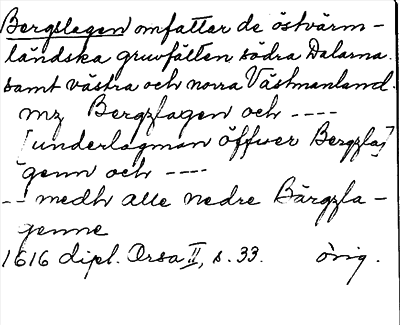 Bergslagen omfattar de östvärm-
ländska gruvfälten södra Dalarna
samt västra och norra Västmanland.
mz Bergzlagen och ----
[underlagman öffuer Bergzla]
genn och ----
-- medh alle nedre Bärgzla-
genne
1616 dipl. Orsa II, s. 33. örig.